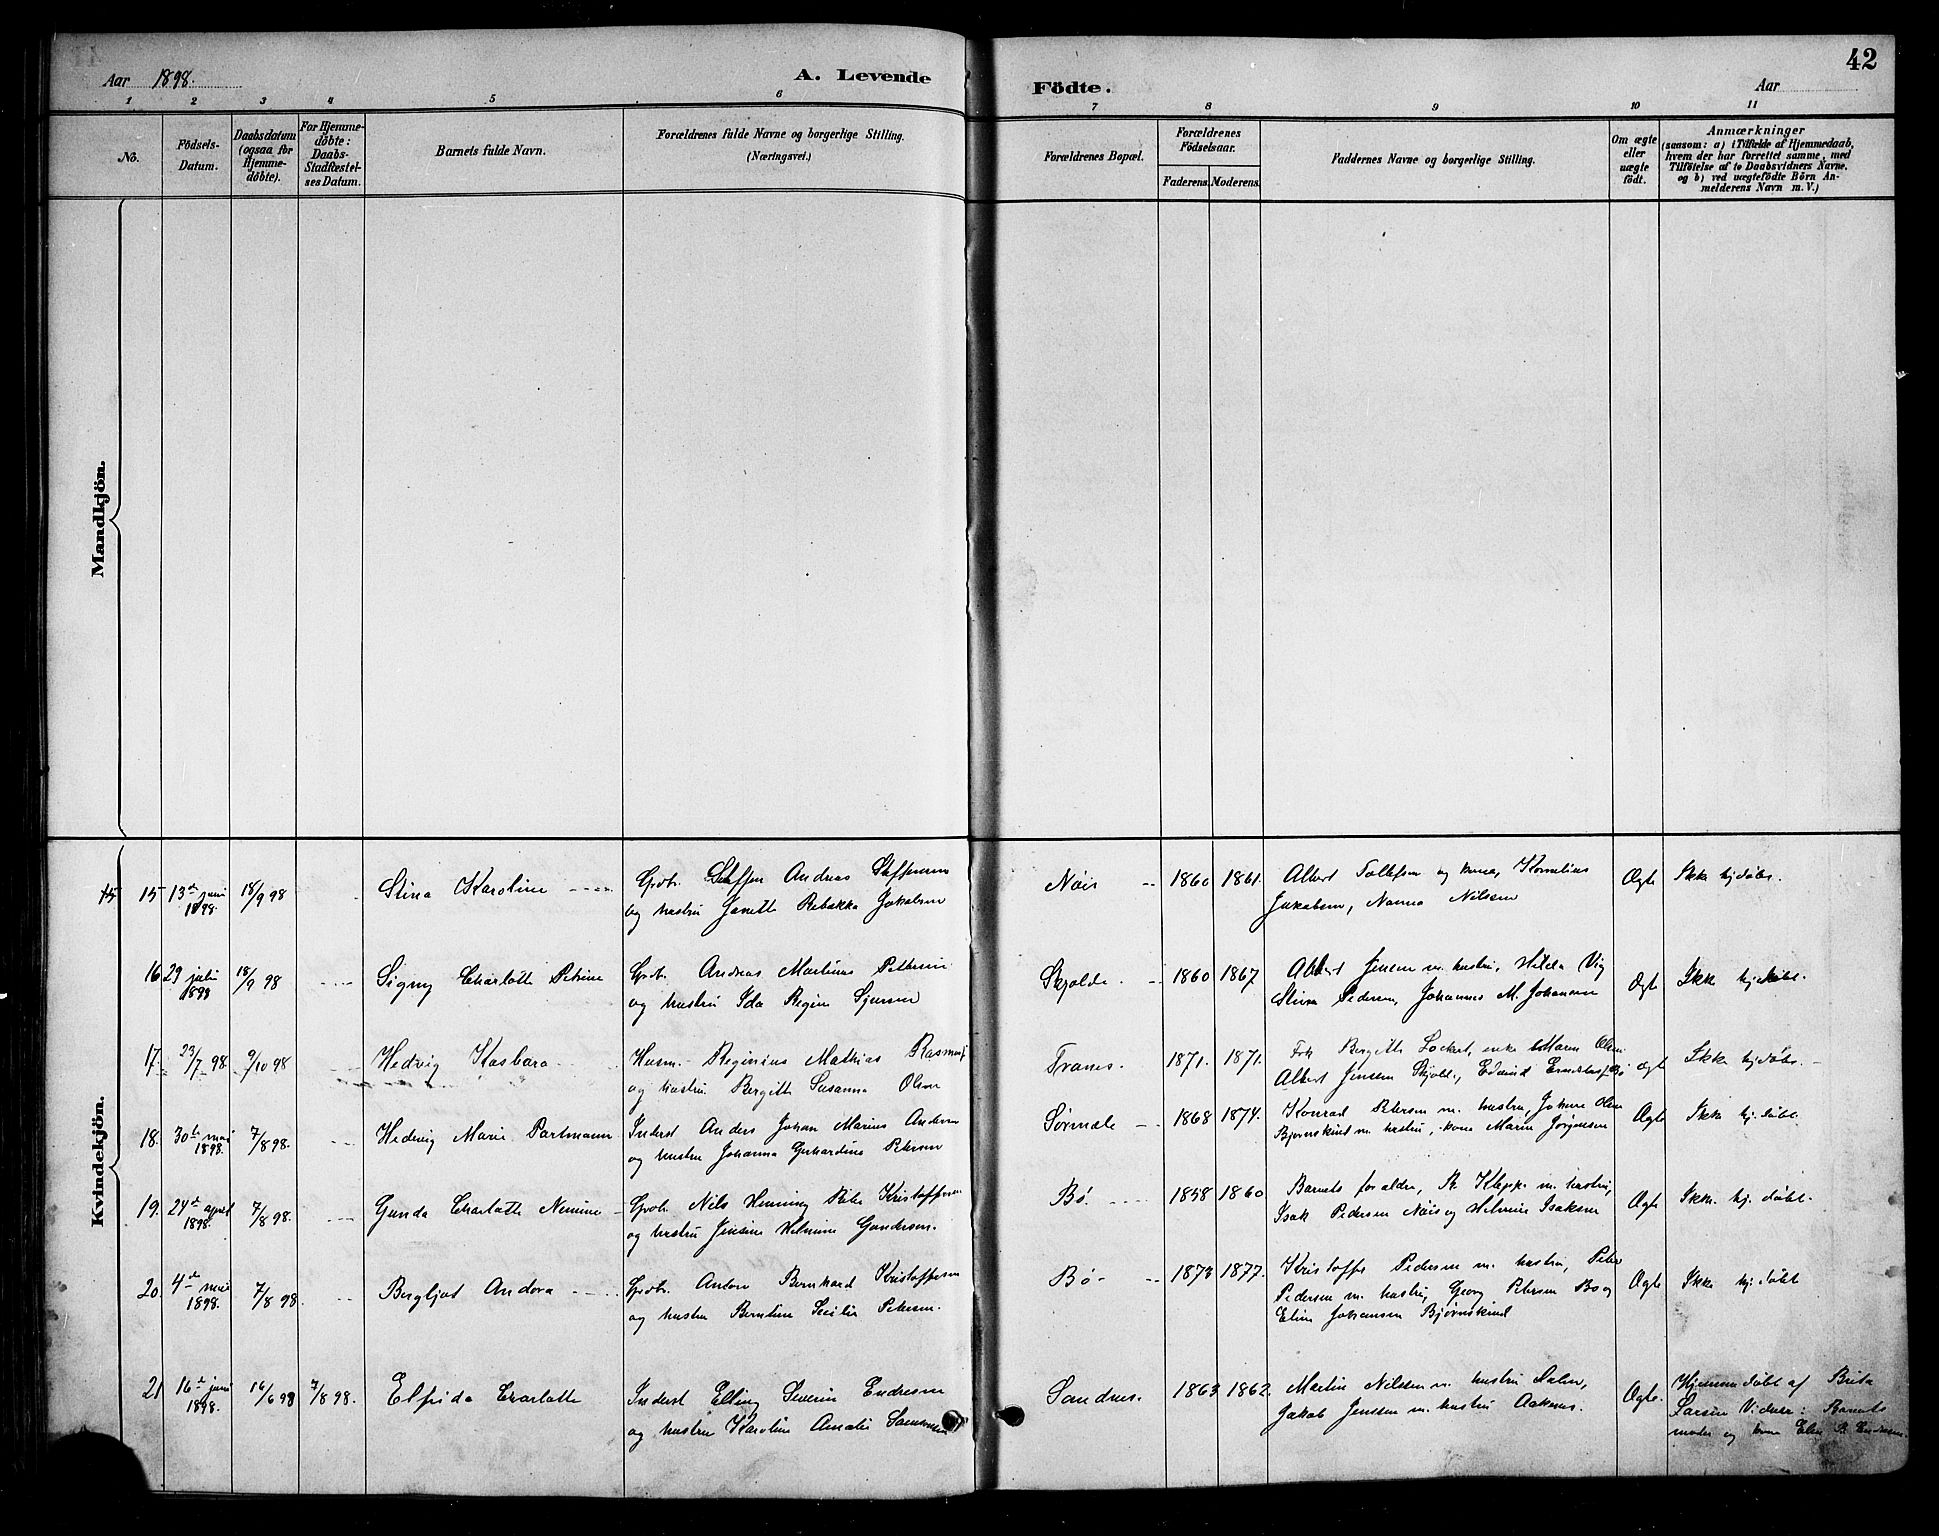 42
Aar 1898.
A. Levende
Födte.
Aar
1 2 3 4 5 6 7 8 9 10 11
No.
Födsels-
Datum.
Daabsdatum
(ogsaa for
Hjemme-
döbte).
For Hjemme-
döbte:
Daabs-
Stadfæstel-
ses Datum.
Barnets fulde Navn.
Forældrenes fulde Navne og borgerlige Stilling.
(Næringsvei.)
Forældrenes Bopæl.
Forældrenes
Födselsaar.
Faderens.
Moderens.
Faddernes Navne og borgerlige Stilling.
Om ægte
eller
uægte
født.
Anmærkninger
(saasom: a) i Tilfælde af Hjemmedaab,
hvem der har forrettet samme, med
Tilföielse af to Daabsvidners Navne.
og b) ved uægtefödte Börn An-
melderens Navn m. V.)
Mandkjön.
Kvindekjön.
15 15 13de juni
1898.
18/9 98
Stina Karoline
Grbr. Steffen Andreas Steffensen
og hustru Janette Rebekka Jakobsen
Nöis
1860 1861.
Albert Tollefsen og kona, Kornelius
Jakobsen, Nanna Nilsen
Ægte
Ikke hj.døbt.
16 29 juli
1898
18/9 98
Signy Charlotte Petrine
Grbr. Andreas Martinus Petersen
og hustru Ida Regine Jensen
Skjolde.
1860 1867
Albert Jensen m. hustru, Hilda Vig
Stina Pedersen, Johannes M. Johansen
Ægte
Ikke hj.døbt.
17. 23/7 98. 9/10 98
Hedvig Kasbara
Husm. Reginius Mathias Rasmus
og hustru Bergitte Susanna Olsen
Tranes.
1871. 1871.
Frk Bergitte Lockert, enke Maren Olsen
Albert Jensen Skjolde, Edvind Bø
Ægte
Ikke hj.døbt.
18. 30te mai
1898.
7/8 98.
Hedvig Marie Partmann
Inderst Anders Johan Marius Andersen
og hustru Johanna Gerhardine Petersen
Sørmele
1868 1874.
Konrad Petersen m. hustru, Johan Olsen
Bjørnskind m. hustru, kona Maren Jørgensen
Ægte
Ikke hj.døbt.
19. 24de april
1898.
7/8 98.
Gunda Charlotte Nemine
Grbr. Nils Henning Peter Kristoffersen
og hustru Jensine Helmine Gundersen.
Bø.
1858 1860
Barnets forældre, Klepp m. hustru,
Isak Pedersen Nöis og Helmine Isaksen
Ægte
Ikke hj. døbt.
20. 4de mai
1898.
7/8 98.
Bergljot Andora
Grbr. Anton Bernhard Kristoffersen
og hustru Berntine Secilie Petersen.
Bø
1873 1877.
Kristoffer Pedersen m. hustru, Peter
Pedersen m. hustru, Georg Petersen Bø og
Eline Johansen Bjørnskind
Ægte
Ikke hj.døbt
21 16de juni
1898.
16/6 98 7/8 98.
Elfrida Charlotte
Inderst Elling Severin Endresen
og hustru Karoline Amalie
Sandnes.
1863 1862.
Martin Nilsen m. hustru
Jakob Jensen m. hustru Aaknes.
Ægte.
Hjemmedøbt af Brita
Larsen Vidner: Barnets
moder og kona Elen Endresen.